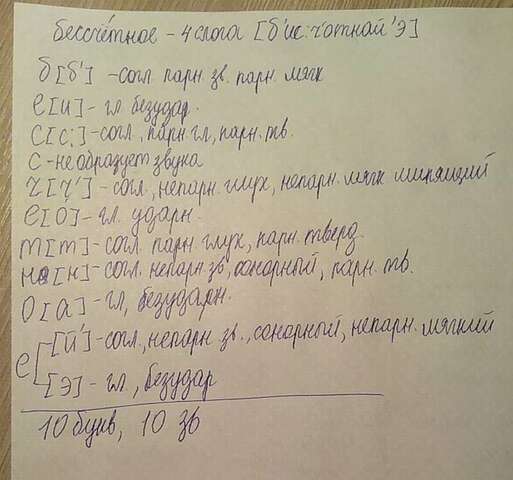 бессчётное - 4 слога [б'ис:ч'отнай'э]
б [б'] - согл. парн. зв. парн. мягк
е [и] - гл. безудар.
с [с:] - согл., парн. гл., парн. тв.
с - не образует звука
ч [ч'] - согл., непарн. глух, непарн. мягк шипящий
е [о] - гл. ударн.
т [т] - согл. парн. глух, парн. тверд.
н [н] - согл. непарн. зв, сонорный, парн. тв.
о [а] - гл, безударн.
е [й'] - согл., непарн. зв., сонорный, непарн. мягкий
[э] - гл., безудар
10 букв, 10 зв